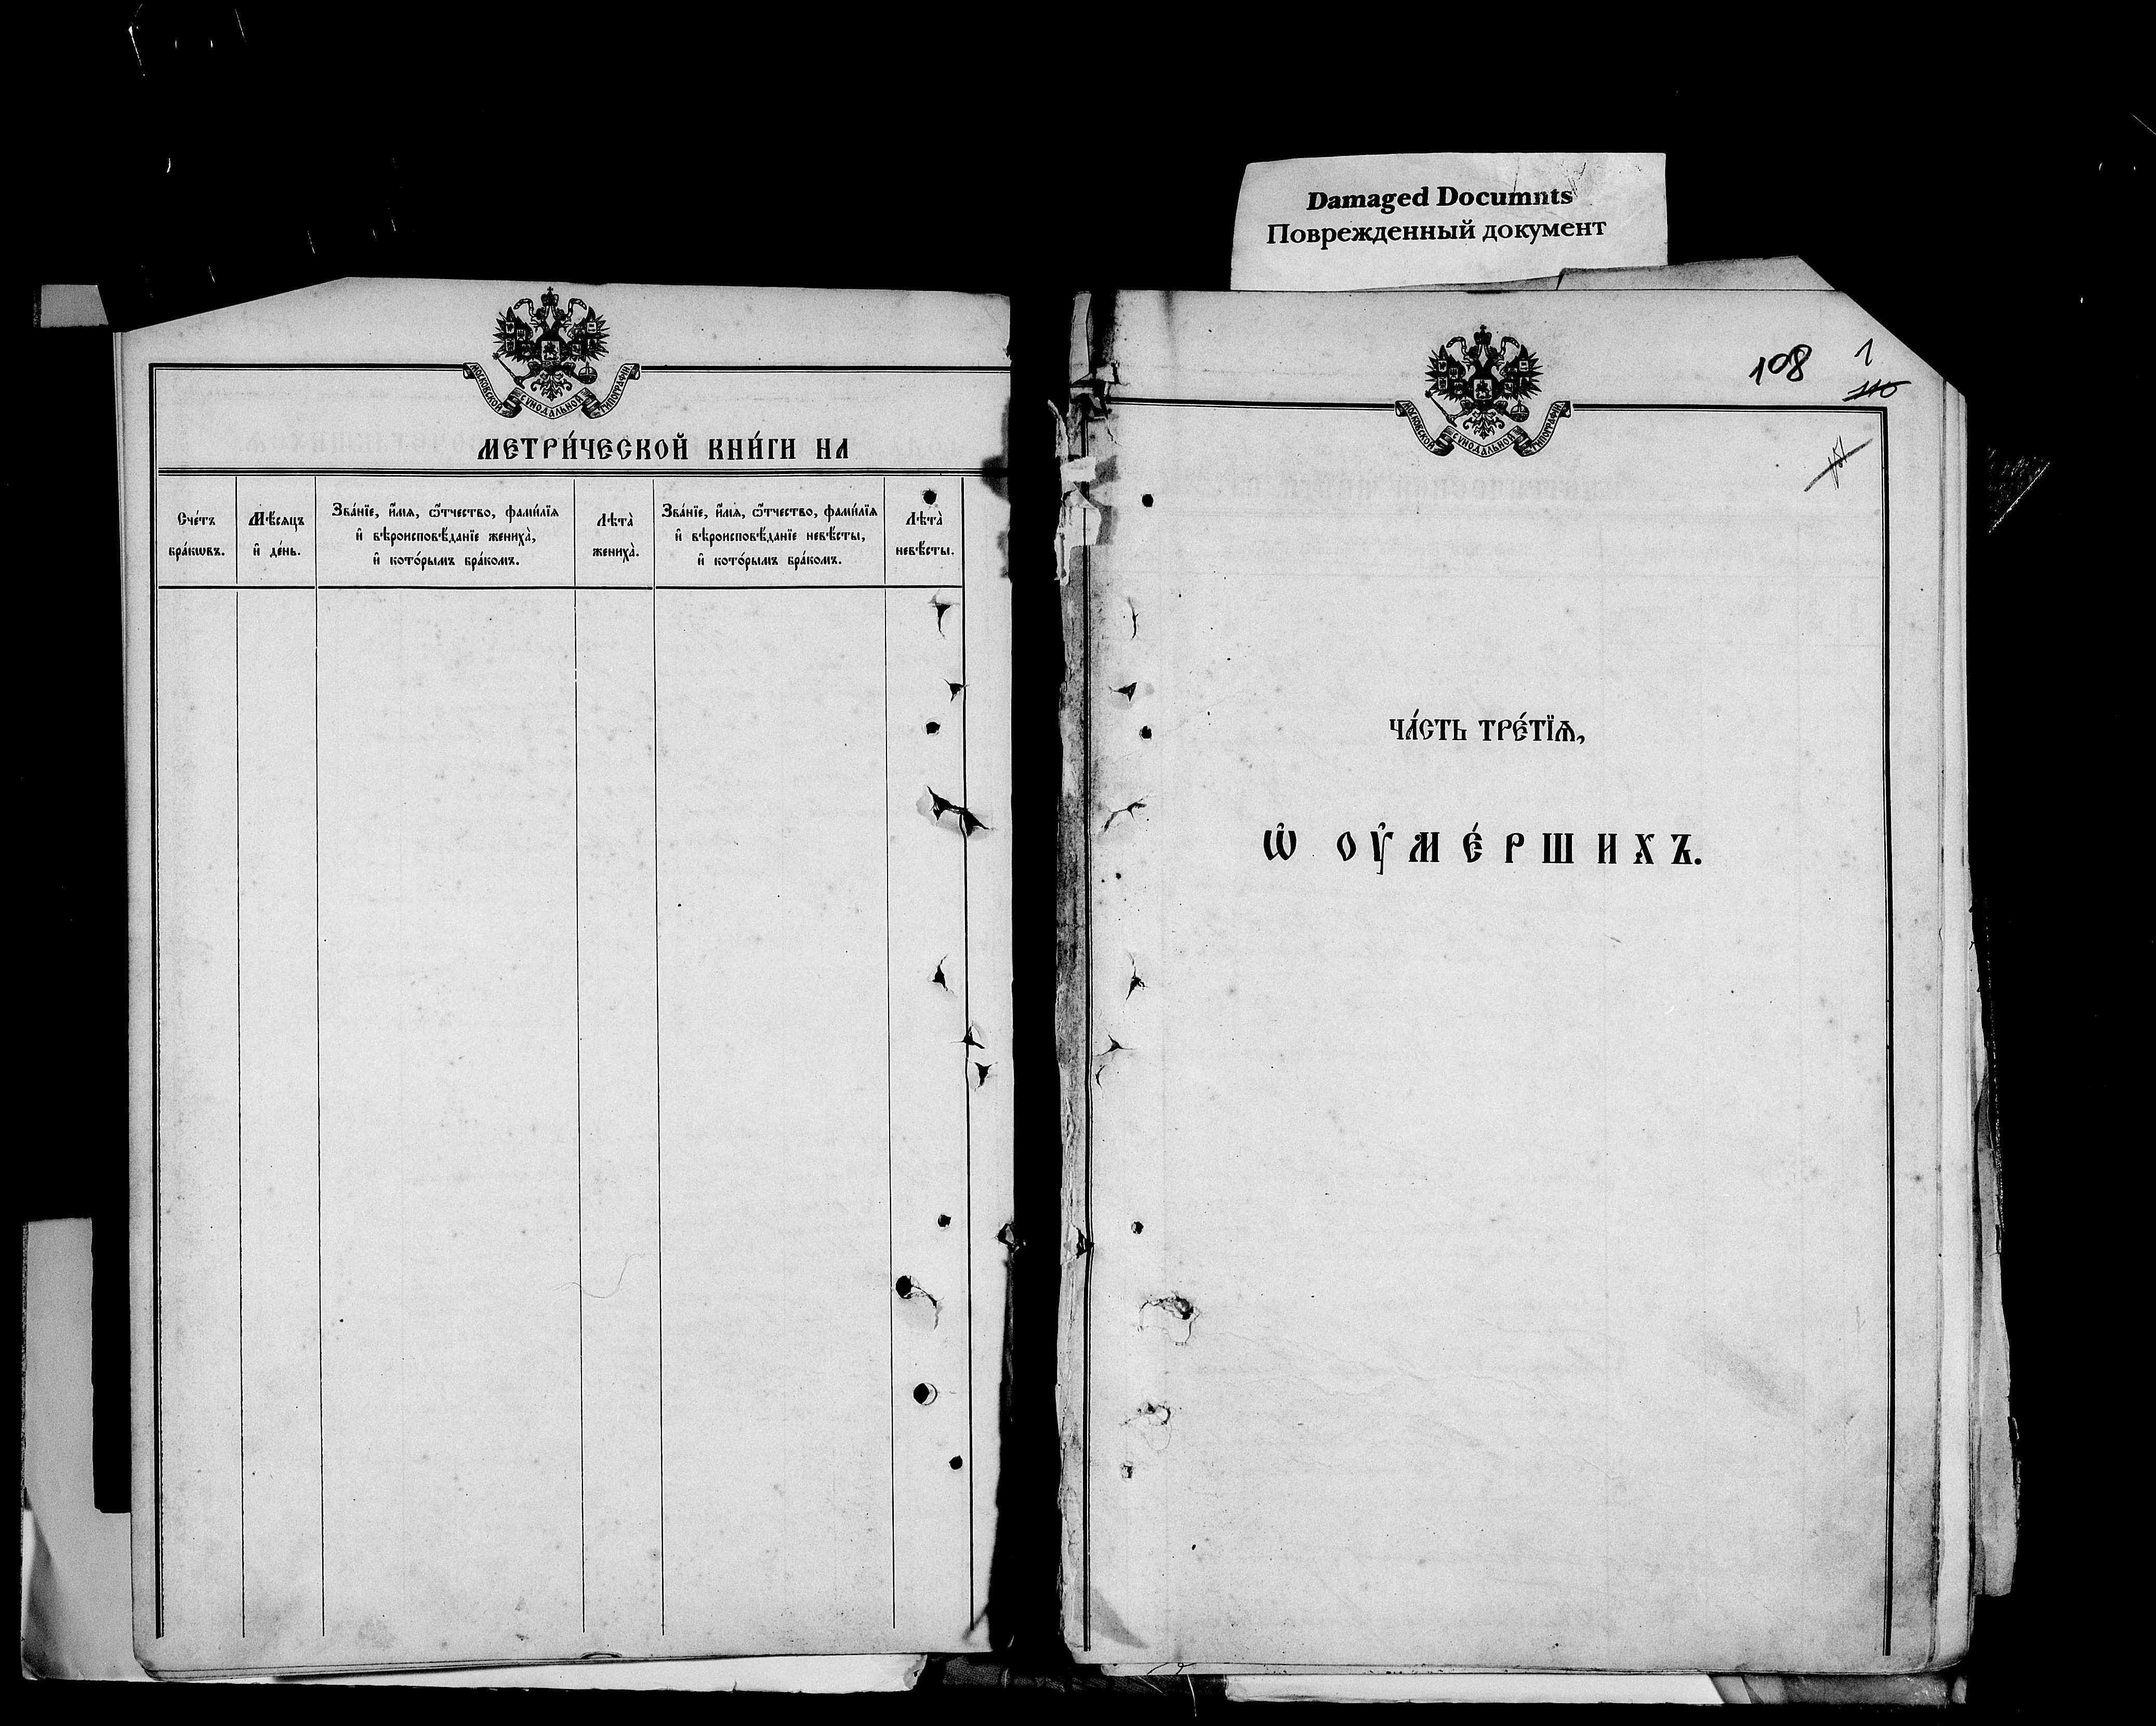 Damaged Documnts
Поврежденный документ
МОСКОВСКОЙ СѴНОДАЛЬНОЙ ТИПОГРАФІИ
МЕТРИ́ЧЕСКОЙ КНИ́ГИ НА
Сче́тъ бра́кѡвъ.
Мѣ́сяцъ и҆ де́нь.
Зва́нїе, и҆́мѧ, ѻ҆́тчество, фами́лїѧ
и҆ вѣроисповѣ́данїе жениха̀,
и҆ кото́рымъ бра́комъ.
Лѣта̀ жениха̀.
Зва́нїе, и҆́мѧ, ѻ҆́тчество, фами́лїѧ
и҆ вѣроисповѣ́данїе невѣ́сты,
и҆ кото́рымъ бра́комъ.
Лѣта̀ невѣ́сты.
МОСКОВСКОЙ СѴНОДАЛЬНОЙ ТИПОГРАФІИ
108
1
110
ЧА́СТЬ ТРЕ́ТЇѦ,
Ѡ҆ ОУ҆МЕ́РШИХЪ.